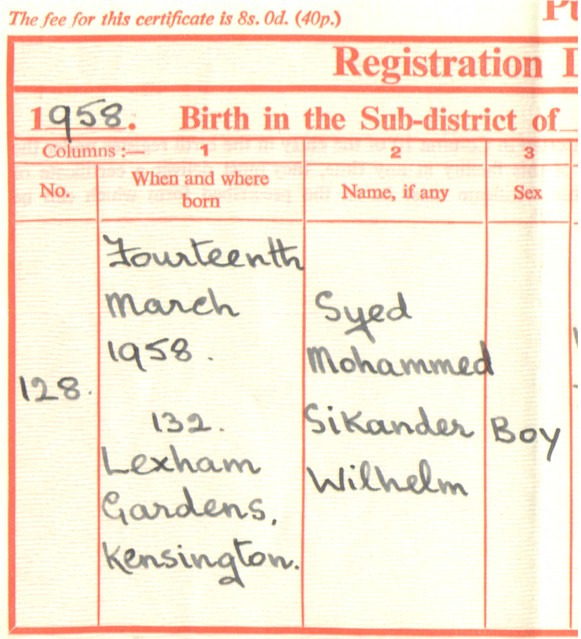 The fee for this certificate is 8s. 0d. (40p.)
Registration
1958. Birth in the Sub-district of
Columns :— 1 2 3
No. When and where born Name, if any Sex
128.
Fourteenth
March
1958.
132.
Lexham
Gardens,
Kensington.
Syed
Mohammed
Sikander
Wilhelm
Boy